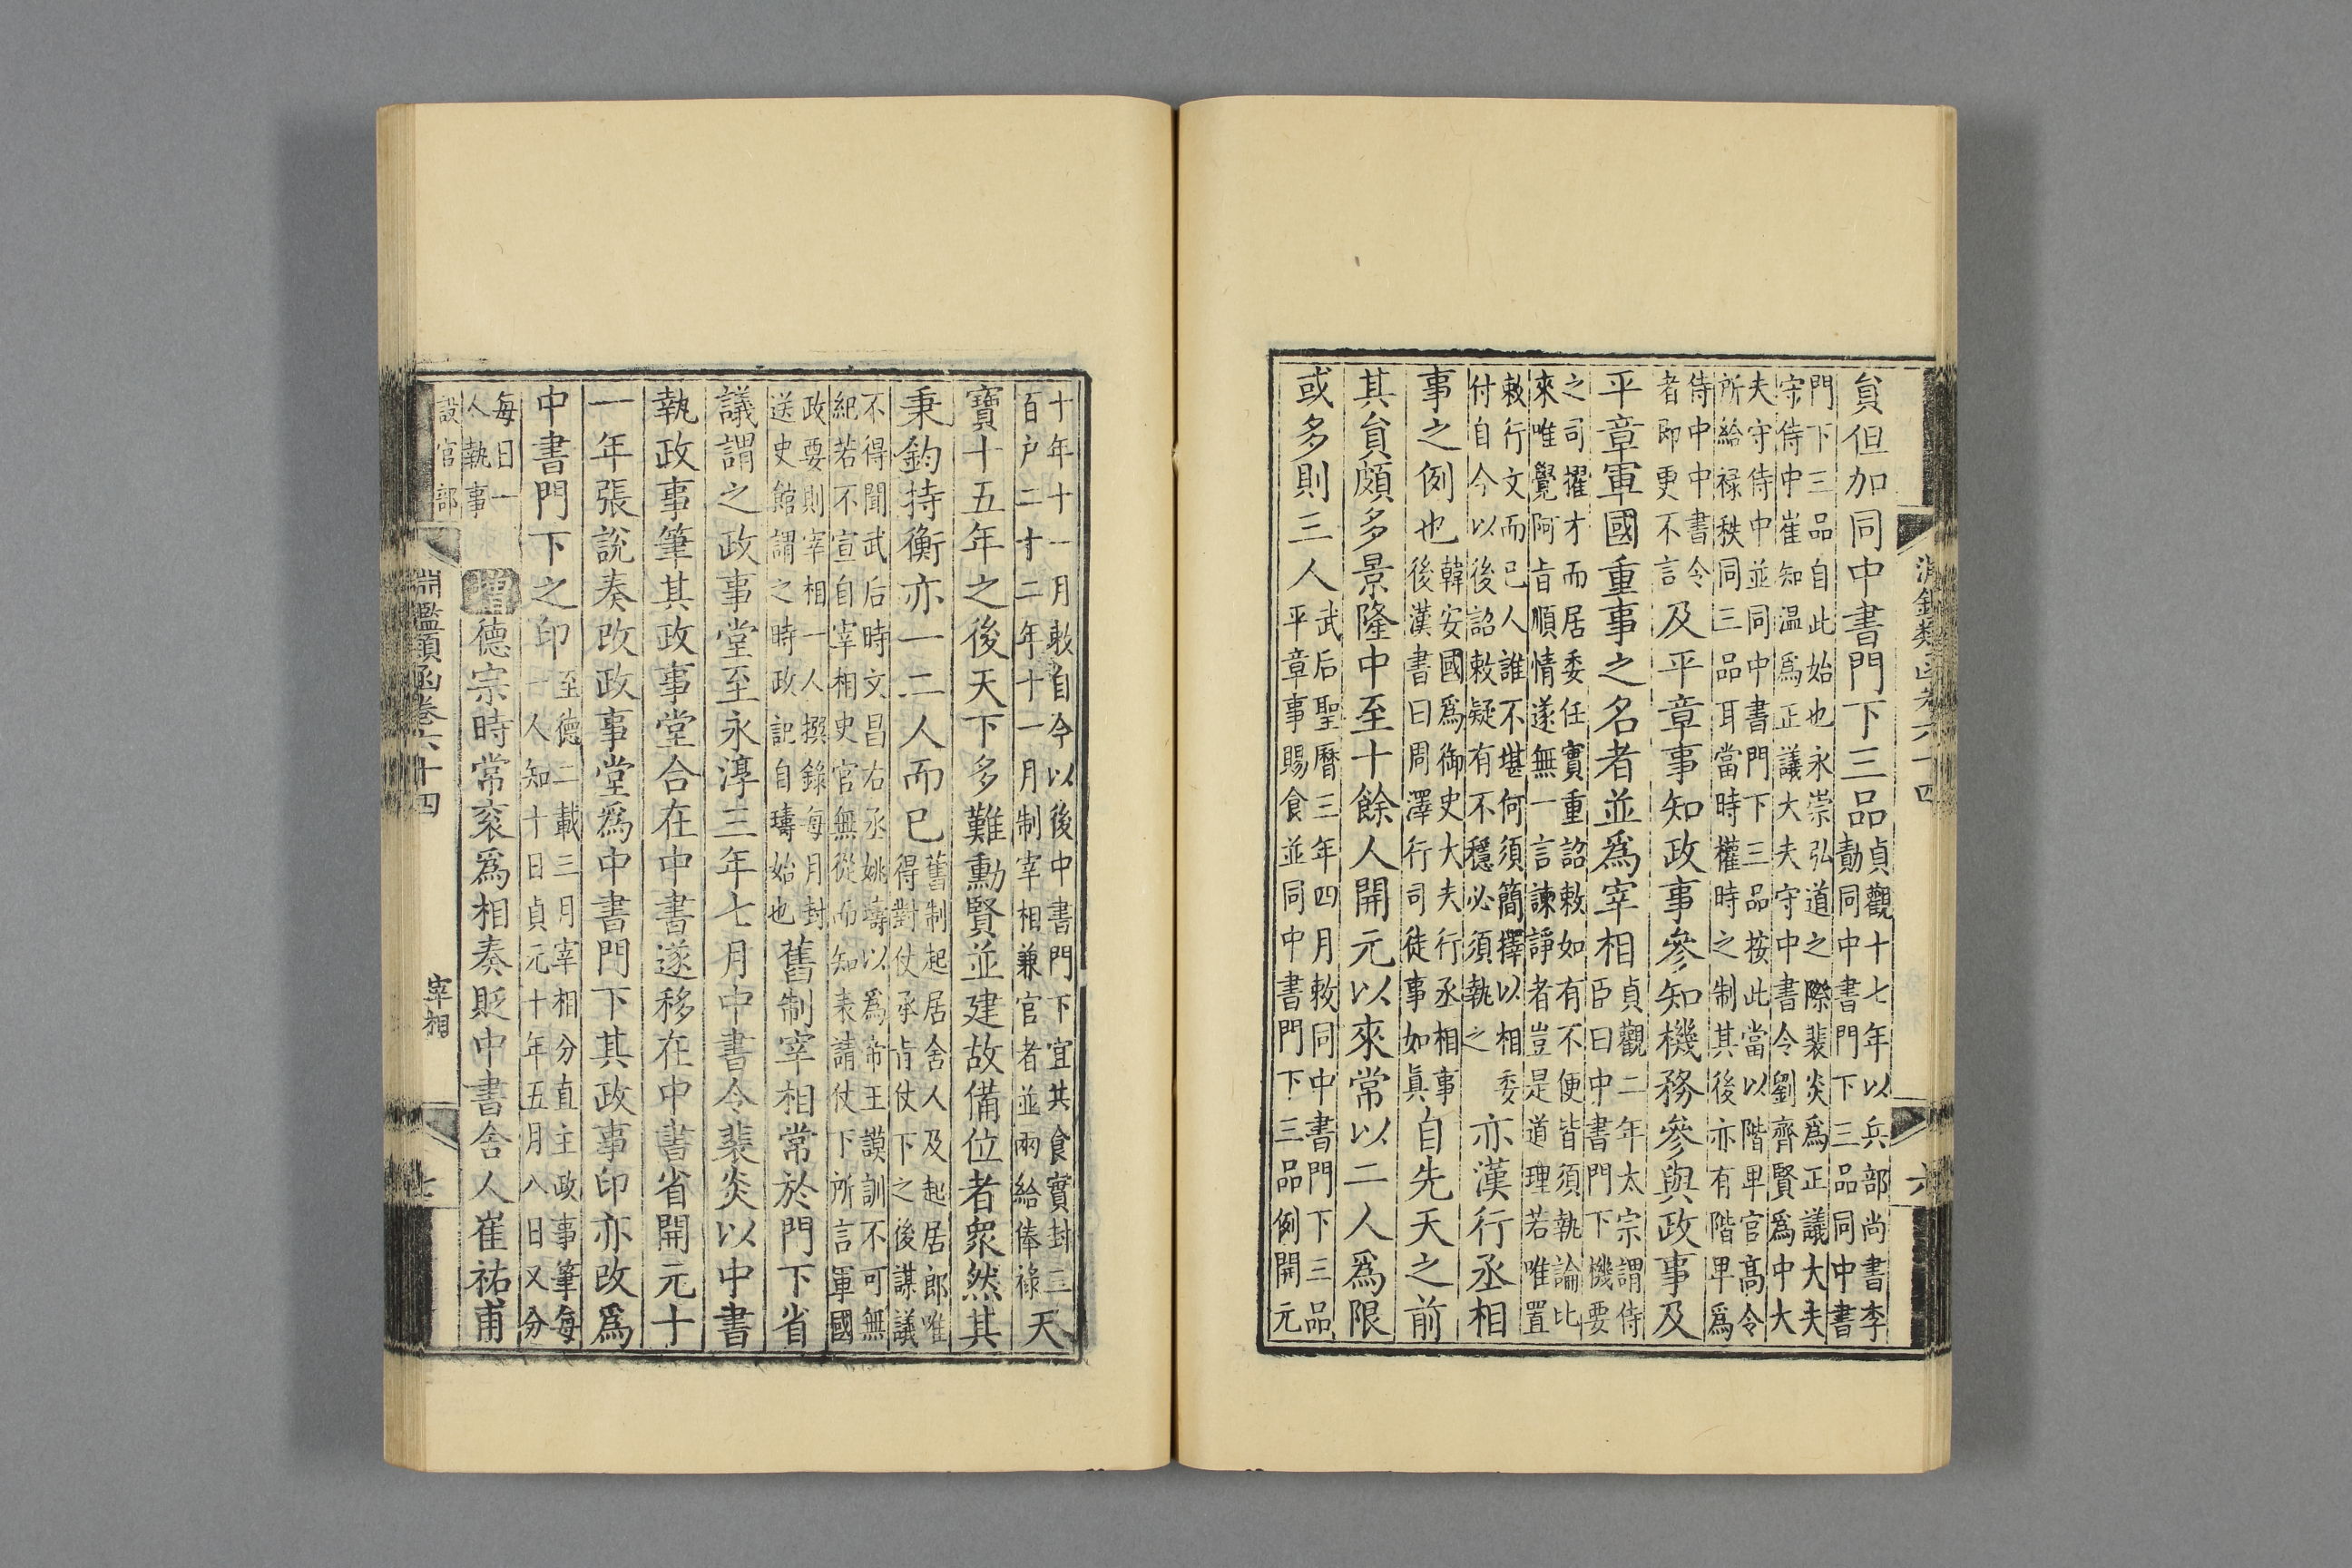 淵鑑類函卷六十四
六
貟但加同中書門下三品
貞觀十七年以兵部尚書李
勣同中書門下三品同中書
門下三品自此始也永崇弘道之際裴炎爲正議大夫
守侍中崔知温爲正議大夫守中書令劉齊賢爲中大
夫守侍中並同中書門下三品按此當以階卑官高令
所給禄秩同三品耳當時權時之制其後亦有階卑爲
侍中中書令
者即更不言
及平章事知政事參知機務參與政事及
平章軍國重事之名者並爲宰相
貞觀二年太宗謂侍
臣曰中書門下機要
之司擢才而居委任實重詔敕如有不便皆須執論比
來唯覺阿旨順情遂無一言諫諍者豈是道理若唯置
敕行文而已人誰不堪何須簡擇以相委
付自今以後詔敕疑有不穩必須執之
亦漢行丞相
事之例也
韓安國爲御史大夫行丞相事
後漢書曰周澤行司徒事如眞
自先天之前
其貟頗多景隆中至十餘人開元以來常以二人爲限
或多則三人
武后聖曆三年四月敕同中書門下三品
平章事賜食並同中書門下三品例開元
十年十一月敕自今以後中書門下宜共食實封三
百户二十二年十一月制宰相兼官者並兩給俸禄
天
寶十五年之後天下多難勳賢並建故備位者衆然其
秉鈞持衡亦一二人而已
舊制起居舍人及起居郎唯
得對仗承旨仗下之後謀議
不得聞武后時文昌右丞姚璹以爲帝王謨訓不可無
紀若不宣自宰相史官無從而知表請仗下所言軍國
政要則宰相一人撰錄每月封
送史館謂之時政記自璹始也
舊制宰相常於門下省
議謂之政事堂至永淳三年七月中書令裴炎以中書
執政事筆其政事堂合在中書遂移在中書省開元十
一年張說奏改政事堂爲中書門下其政事印亦改爲
中書門下之印
至德二載三月宰相分直主政事筆每
一人知十日貞元十年五月八日又分
每日一
人執事
增
德宗時常衮爲相奏貶中書舍人崔祐甫
設官部
淵鑑類函卷六十四
宰相
七